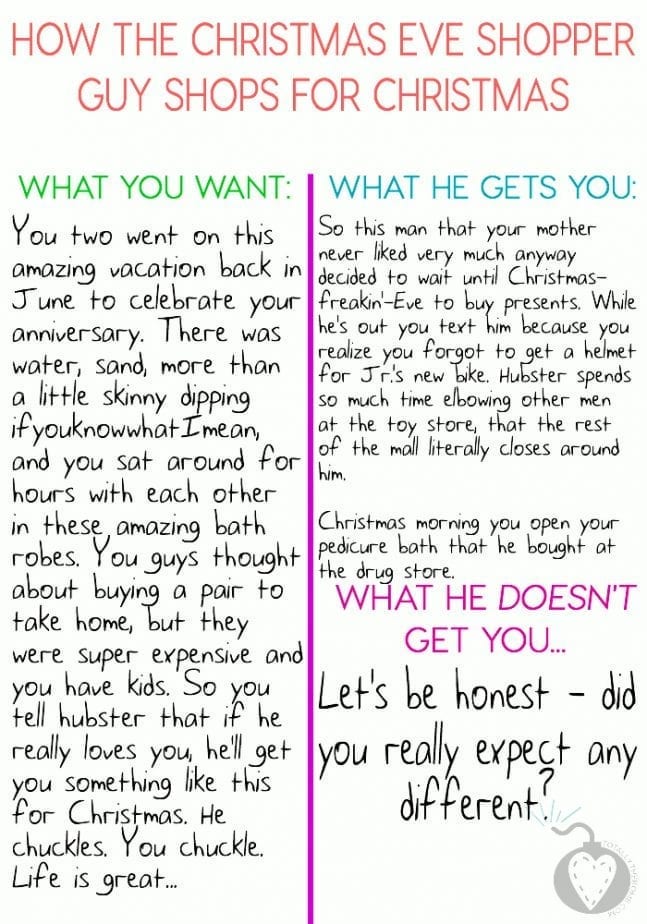 HOW THE CHRISTMAS EVE SHOPPER
GUY SHOPS FOR CHRISTMAS
WHAT YOU WANT:
You two went on this
amazing vacation back in
June to celebrate your
anniversary. There was
water, sand, more than
a little skinny dipping
ifyouknowwhatImean,
and you sat around for
hours with each other
in these amazing bath
robes. You guys thought
about buying a pair to
take home, but they
were super expensive and
you have kids. So you
tell hubster that if he
really loves you, he'll get
you something like this
for Christmas. He
chuckles. You chuckle.
Life is great...
WHAT HE GETS YOU:
So this man that your mother
never liked very much anyway
decided to wait until Christmas-
freakin'-Eve to buy presents. While
he's out you text him because you
realize you forgot to get a helmet
for Jr.'s new bike. Hubster spends
so much time elbowing other men
at the toy store, that the rest
of the mall literally closes around
him.
Christmas morning you open your
pedicure bath that he bought at
the drug store.
WHAT HE DOESN'T
GET YOU...
Let's be honest - did
you really expect any
different?
TOTALLYTHEBOMB.COM